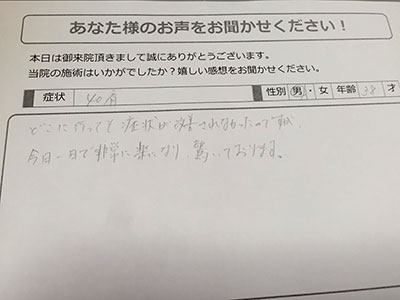 あなた様のお声をお聞かせください！
本日は御来院頂きまして誠にありがとうございます。
当院の施術はいかがでしたか？嬉しい感想をお聞かせください。
症状 40肩 性別 男・女 年齢 38 才
どこに行っても症状が改善されなかったのですが、
今日一日で非常に楽になり、驚いております。